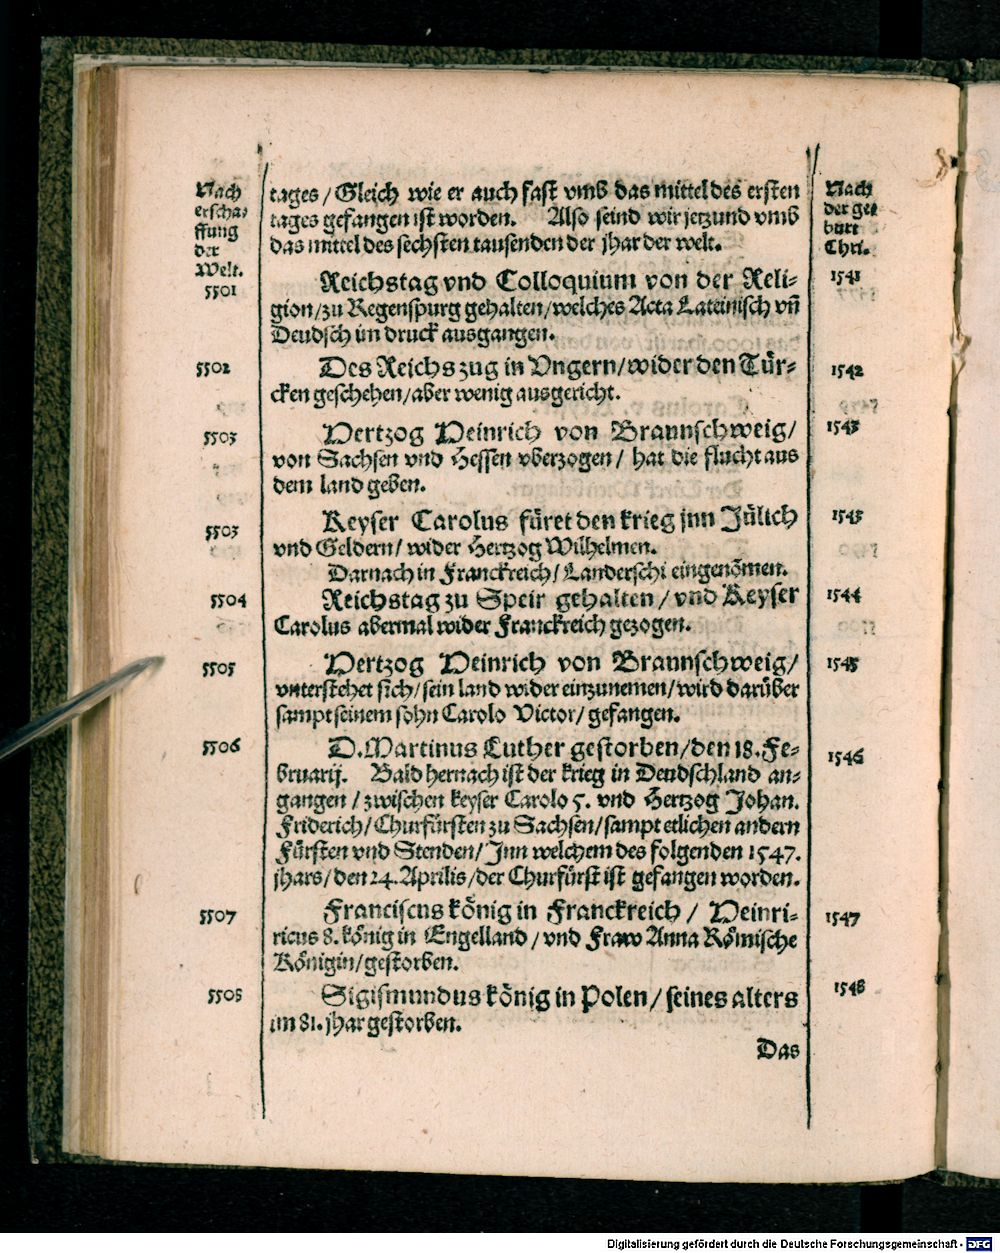 Nach
erscha-
ffung
der
Welt.
Nach
der ge-
burt
Chri.
tages / Gleich wie er auch fast vmb das mittel des ersten
tages gefangen ist worden. Also seind wir jetzund vmb
das mittel des sechsten tausenden der jhar der welt.
5501 Reichstag vnd Colloquium von der Reli- 1541
gion / zu Regenspurg gehalten / welches Acta Lateinisch vn̄
Deudsch im druck ausgangen.
5502 Des Reichs zug in Vngern / wider den Tür- 1542
cken geschehen / aber wenig ausgericht.
5503 Hertzog Heinrich von Braunschweig / 1543
von Sachsen vnd Hessen vberzogen / hat die flucht aus
dem land geben.
5503 Keyser Carolus füret den krieg jnn Jülich 1543
vnd Geldern / wider Hertzog Wilhelmen.
Darnach in Franckreich / Landerschi eingenōmen.
5504 Reichstag zu Speir gehalten / vnd Keyser 1544
Carolus abermal wider Franckreich gezogen.
5505 Hertzog Heinrich von Braunschweig / 1545
vnterstehet sich / sein land wider einzunemen / wird darüber
sampt seinem sohn Carolo Victor / gefangen.
5506 D. Martinus Luther gestorben / den 18. Fe- 1546
bruarij. Bald hernach ist der krieg in Deudschland an-
gangen / zwischen keyser Carolo 5. vnd Hertzog Johan.
Friderich / Churfürsten zu Sachsen / sampt etlichen andern
Fürsten vnd Stenden / Jnn welchem des folgenden 1547.
jhars / den 24. Aprilis / der Churfürst ist gefangen worden.
5507 Franciscus könig in Franckreich / Heinri- 1547
ricus 8. könig in Engelland / vnd Fraw Anna Römische
Königin / gestorben.
5508 Sigismundus könig in Polen / seines alters 1548
im 81. jhar gestorben.
Das
Digitalisierung gefördert durch die Deutsche Forschungsgemeinschaft - DFG